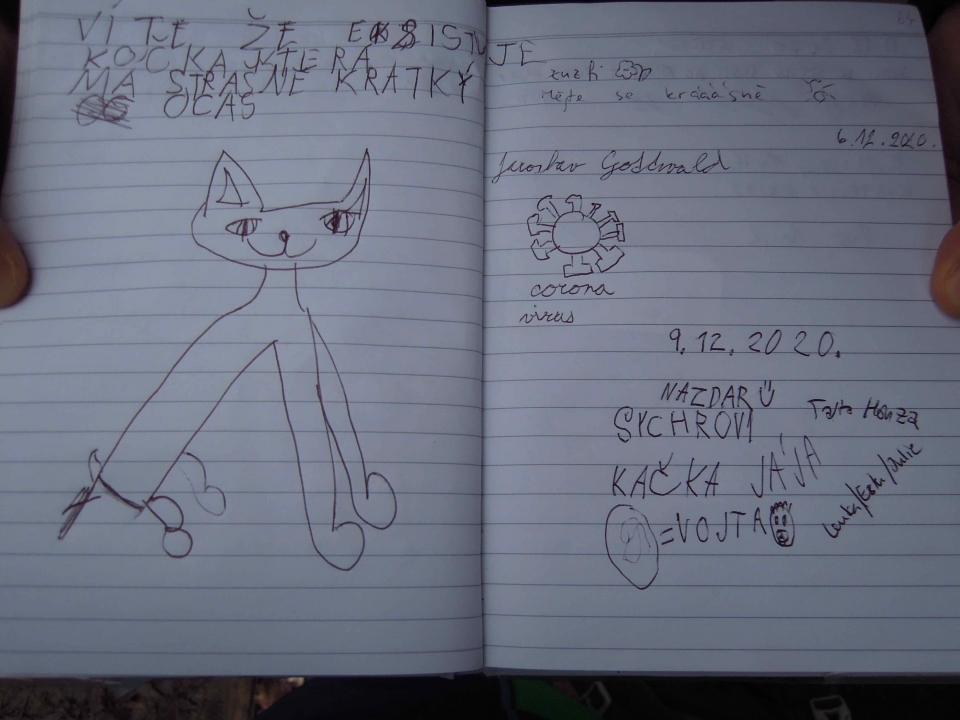 VÍTE ŽE EKSISTUJE
KOČKA KTERÁ
MÁ STRAŠNĚ KRÁTKÝ
OCAS
zuzk
Mějte se krááásně
6.12.2020.
Jaroslav Gottwald
corona
virus
9.12.2020.
NAZDAR
SYCHROVI
Táta Honza
KAČKA JÁJA
=VOJTA
Lenka/Eští/Julie